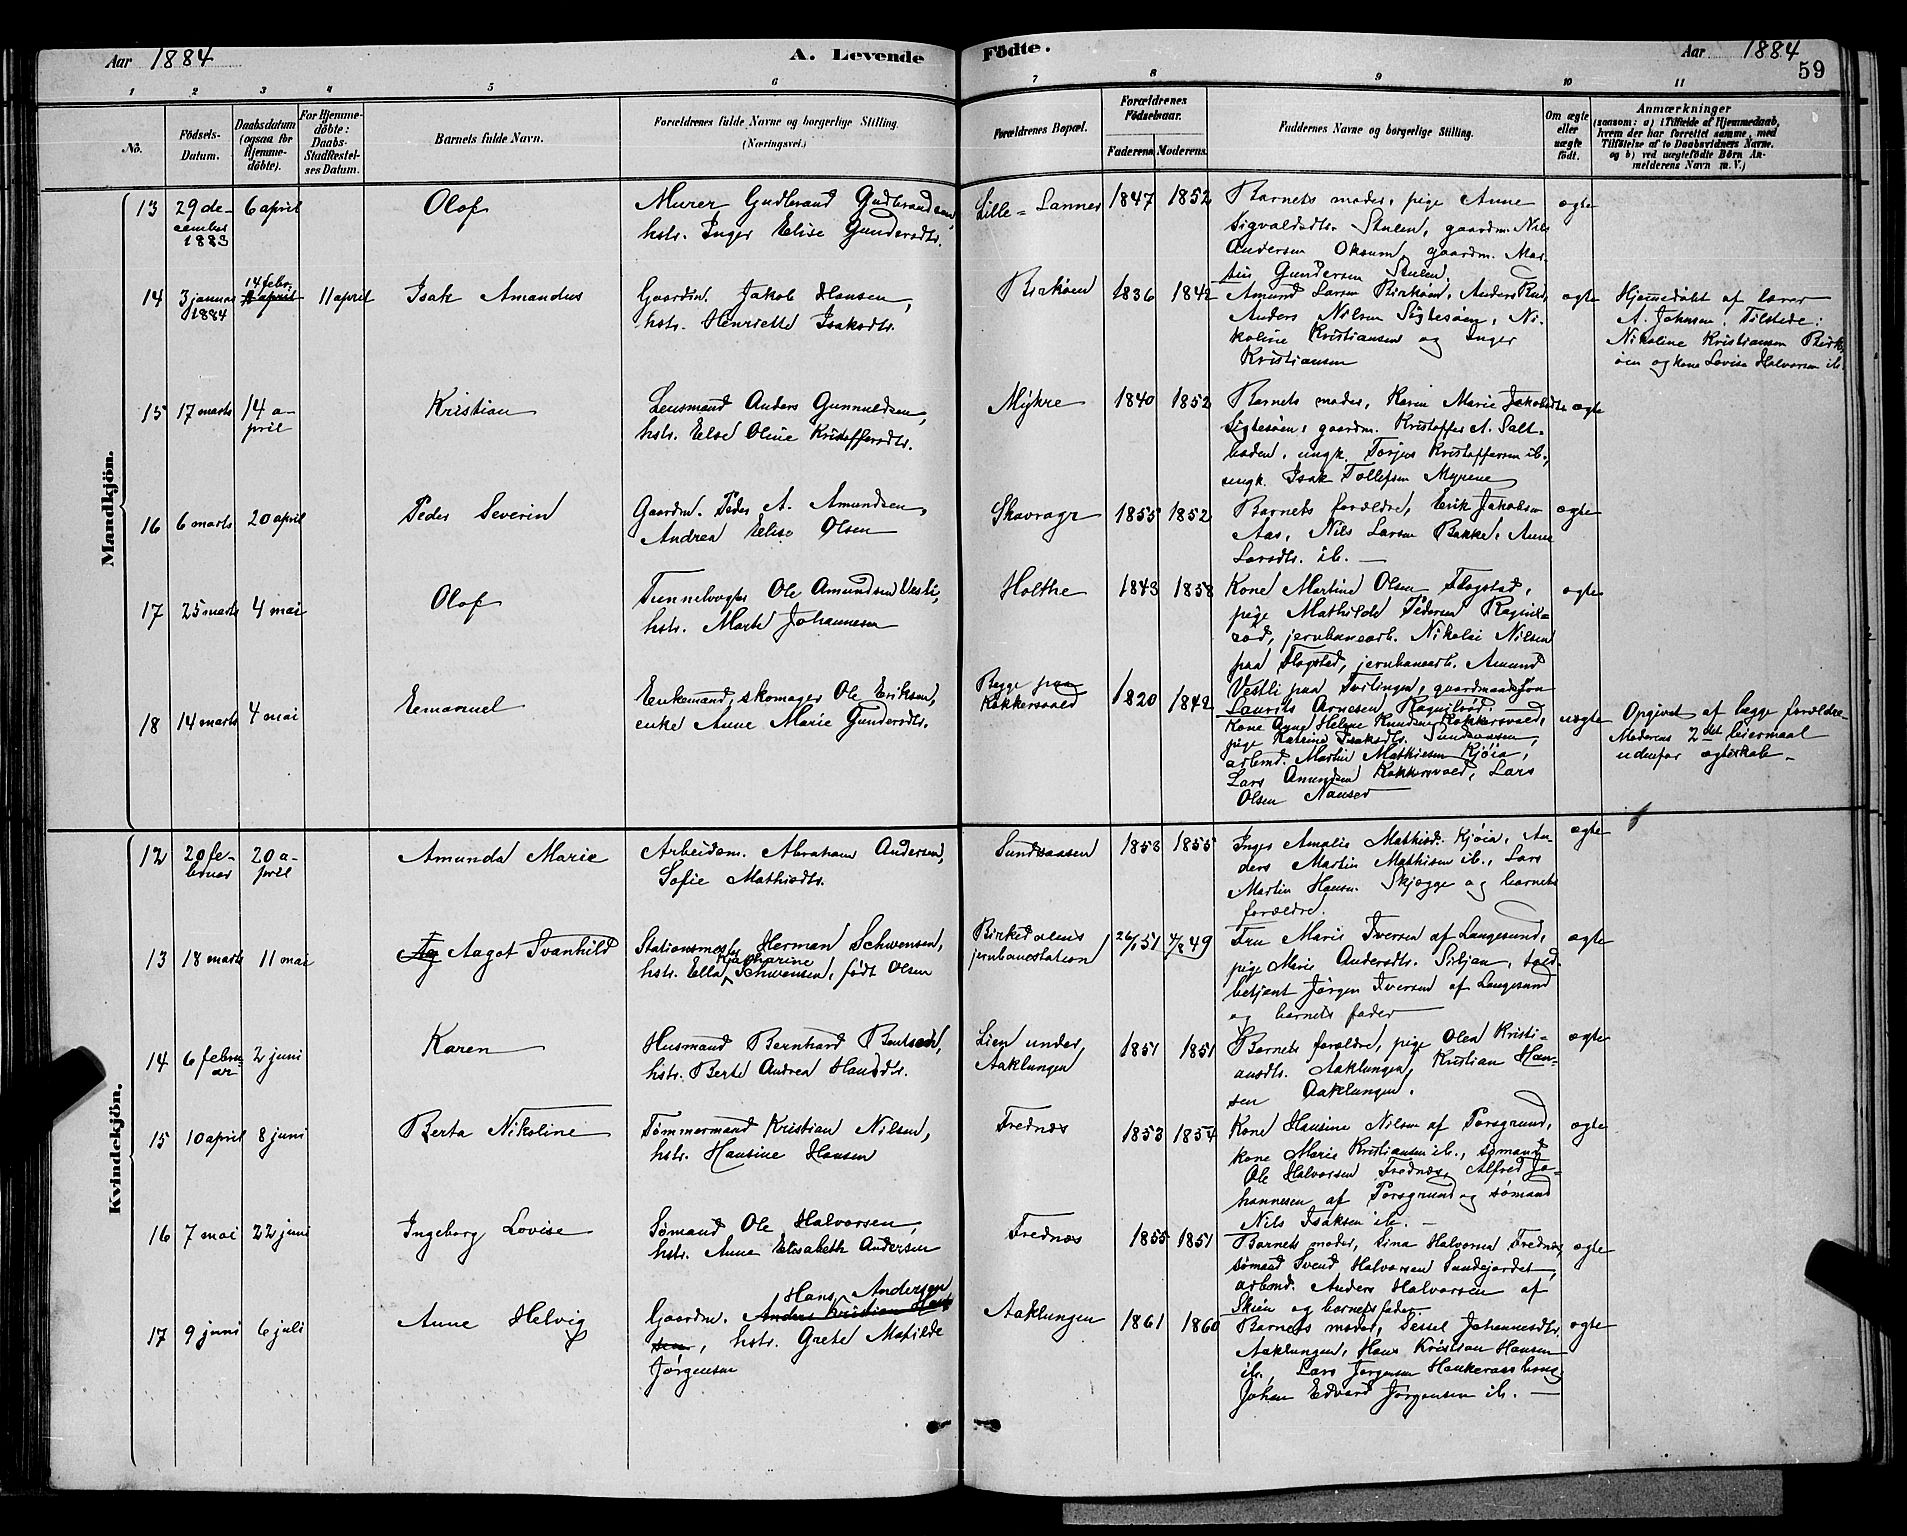 Aar 1884 A. Levende Födte. Aar 1884
59
1 2 3 4 5 6 7 8 9 10 11
No.
Födsels-
Datum.
Daabsdatum
(ogsaa for
Hjemme-
döbte).
For Hjemme-
döbte:
Daabs-
Stadfæstel-
ses Datum.
Barnets fulde Navn.
Forældrenes fulde Navne og borgerlige Stilling.
(Næringsvei.)
Forældrenes Bopæl.
Forældrenes
Födselsaar.
Faderens. Moderens.
Faddernes Navne og borgerlige Stilling.
Om ægte
eller
uægte
födt.
Anmærkninger
(saasom: a) i Tilfælde af Hjemmedaab,
hvem der har forrettet samme, med
Tilföielse af to Daabsvidners Navne.
og b) ved uægtefödte Börn An-
melderens Navn m. V.)
Mandkjön.
13 29 de-
cember
1883
6 april
Olof
Murer Gudbrand Gudbrandsen,
hstr. Inger Elise Gundersdtr.
Lille-Sannes
1847 1852
Barnets moder, pige Anne
Sigvaldsdtr. Stulen, gaardm. Nils
Andersen Oksum, gaardm. Mar-
tin Gundersen Stulen.
ægte
14 3 januar
1884
14 febr.
april
11 april
Isak Amandus
Gaardm. Jakob Hansen,
hstr. Henriette Isaksdtr.
Birköen
1836 1842
Amund Larsen Birköen, Anders Rud,
Anders Nilsen Sigtesöen, Ni-
koline Kristiansen og Inger
Kristiansen
ægte
Hjemmedöbt af lærer
A. Johnsen. Tilstede:
Nikoline Kristiansen Birk-
öen og kone Lovise Halvorsen ib.
15 17 marts
14 a-
pril
Kristian
Lensmand Anders Gunnuldsen,
hstr. Else Oline Kristoffersdtr.
Mykre
1840 1852
Barnets moder, Karen Marie Jakobsdtr.
Sigtesöen, gaardm. Kristoffer A. Salt-
boden, ungk. Torjus Kristoffersen ib.,
ungk. Isak Tollefsen Myrene
ægte
16 6 marts 20 april
Peder Severin
Gaardm. Peder A. Amundsen,
Andrea Elise Olsen
Skavrager
1855 1852
Barnets forældre, Erik Jakobsen
Aas, Nils Larsen Bakke, Anne
Larsdtr. ib.
ægte
17 25 marts 4 mai
Olof
Tunnelvogter Ole Amundsen Vestli,
hstr. Marte Johannesen
Holthe
1843 1858
Kone Martine Olsen Flogstad,
pige Mathilde Pedersen Ragnils-
röd, jernbanearb. Nikolai Nilsen
paa Flogstad, jernbanearb. Amund
Vestli paa Tvelingen, gaardmandssön
Laurits Arnesen Ragnilröd.
ægte
18 14 marts 4 mai
Eemanuel
Enkemand, skomager Ole Eriksen,
enke Anne Marie Gundersdtr.
Begge paa
Kokkersvold
1820 1842
Kone Anne Helene Knudsen Kokkersvold,
pige Katrine Isaksdtr. Sundsaasen,
arbmd. Martin Mathisen Kjöia,
Lars Amundsen Kokkersvold, Lars
Olsen Nauser
uægte
Opgivet af begge forældre
Moderens 2det leiermaal
udenfor ægteskab
Kvindekjön.
12 20 fe-
bruar
20 a-
pril
Amunda Marie
Arbeidsm. Abraham Andersen,
Sofie Mathisdtr.
Sundsaasen
1853 1855
Inger Amalie Mathisd. Kjöia, An-
ders Martin Mathisen ib., Lars
Martin Hansen Skjegge og barnets
forældre.
ægte
13 18 marts 11 mai
Aagot Svanhild
Stationsmester Herman Schwensen,
Katharine
hstr. Ella Schwensen, född Olsen
Birkedalens
jernbanestation
26/1 51 4/8 49
Fru Marie Iversen af Langesund,
pige Marie Andersdtr. Siljan, told-
betjent Jörgen Iversen af Langesund
og barnets fader
ægte
14 6 febru-
ar
2 juni
Karen
Husmand Bernhard Bentsen,
hstr. Berte Andrea Hansdtr.
Lien under
Aaklungen
1851 1851
Barnets forældre, pige Olea Kristi-
ansdtr. Aaklungen, Kristian Han-
sen Aaklungen.
ægte
15 10 april 8 juni
Berta Nikoline
Tömmermand Kristian Nilsen,
hstr. Hansine Hansen
Frednæs
1853 1854
Kone Hansine Nilsen af Porsgrund,
kone Marie Kristiansen ib., sömand
Ole Halvorsen Frednæs, Alfred Jo-
hannesen af Porsgrund og sömand
Nils Isaksen ib.
ægte
16 7 mai 22 juni
Ingeborg Lovise
Sömand Ole Halvorsen,
hstr. Anne Elisabeth Andersen
Frednæs
1855 1851
Barnets moder, Lina Halvorsen Frednæs,
sömand Svend Halvorsen Sundejordet,
arbmd. Anders Halvorsen af
Skien og barnets fader
ægte
17 9 juni 6 juli
Anne Helvig
Hans Andersen
Gaardm. Anders Kristian Han-
sen, hstr. Grete Matilde
Jörgensen
Aaklungen
1861 1860
Barnets moder, Sessel Johannesdtr.
Aaklungen, Hans Kristian Hansen
ib., Lars Jörgensen Haukeraashaug
Johan Edvard Jörgensen ib.
ægte